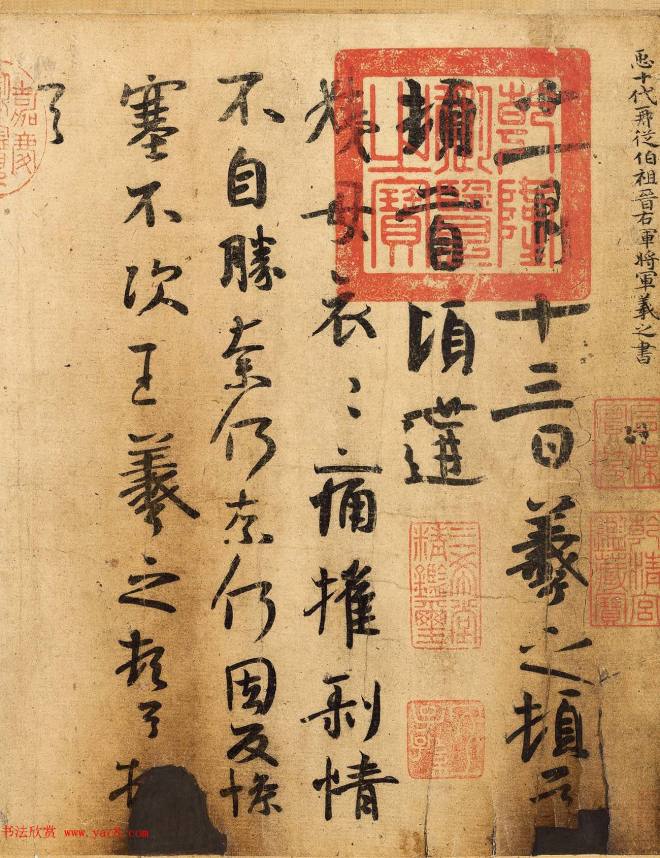 𢘑十代再從伯祖晉右軍將軍羲之書
十一月十三日羲之頓首
頓首頃遘
姨母哀〻痛摧剝情
不自勝奈何奈何因反慘
塞不次王羲之頓首頓
首
乾隆御覽之寶
三希堂精鑑璽
宜子孫
乾清宮鑑藏寶
嘉慶
书法欣赏 www.yac8.com